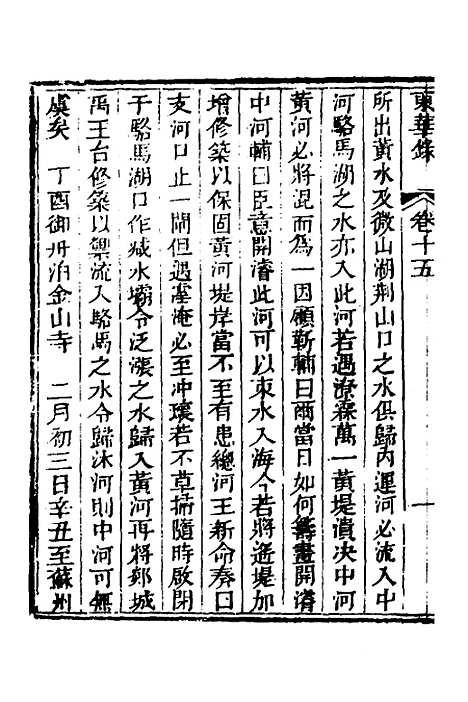 東華錄 卷十五 一
所出黃水及微山湖荆山口之水俱歸內運河必流入中
河駱馬湖之水亦入此河若遇潦霖萬一黃堤潰决中河
黃河必將混而為一因顧靳輔曰爾當日如何籌畫開濬
中河輔曰臣意開濬此河可以束水入海今若將遙堤加
增修築以保固黃河堤岸當不至有患總河王新命奏曰
支河口止一閘但遇塞淹必至冲壞若不草掃隨時啟閉
于駱馬湖口作减水壩令泛漲之水歸入黃河再將郯城
禹王台修築以禦流入駱馬之水令歸沭河則中河可無
虞矣 丁酉御舟泊金山寺 二月初三日辛丑至蘇州